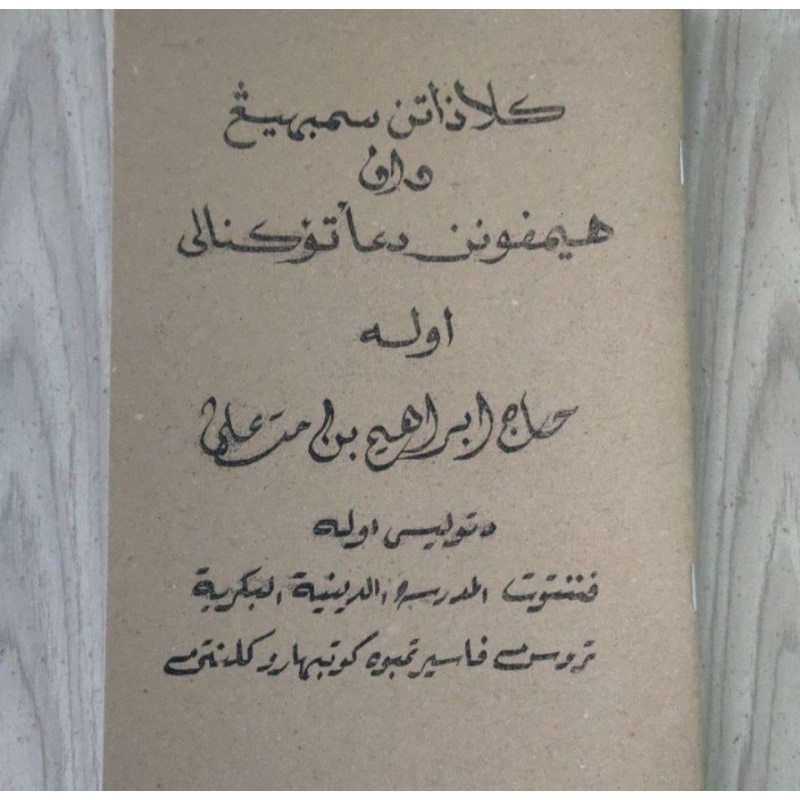 کلاذاتن سمبهيڠ
دان
هيمفونن دعأ تؤکنالي
اوله
حاج ابراهيم بن مت علي
دتوليس اوله
فننتوت المدرسة الدينية البکرية
تروس فاسير تمبوه کوتبهارو کلنتن